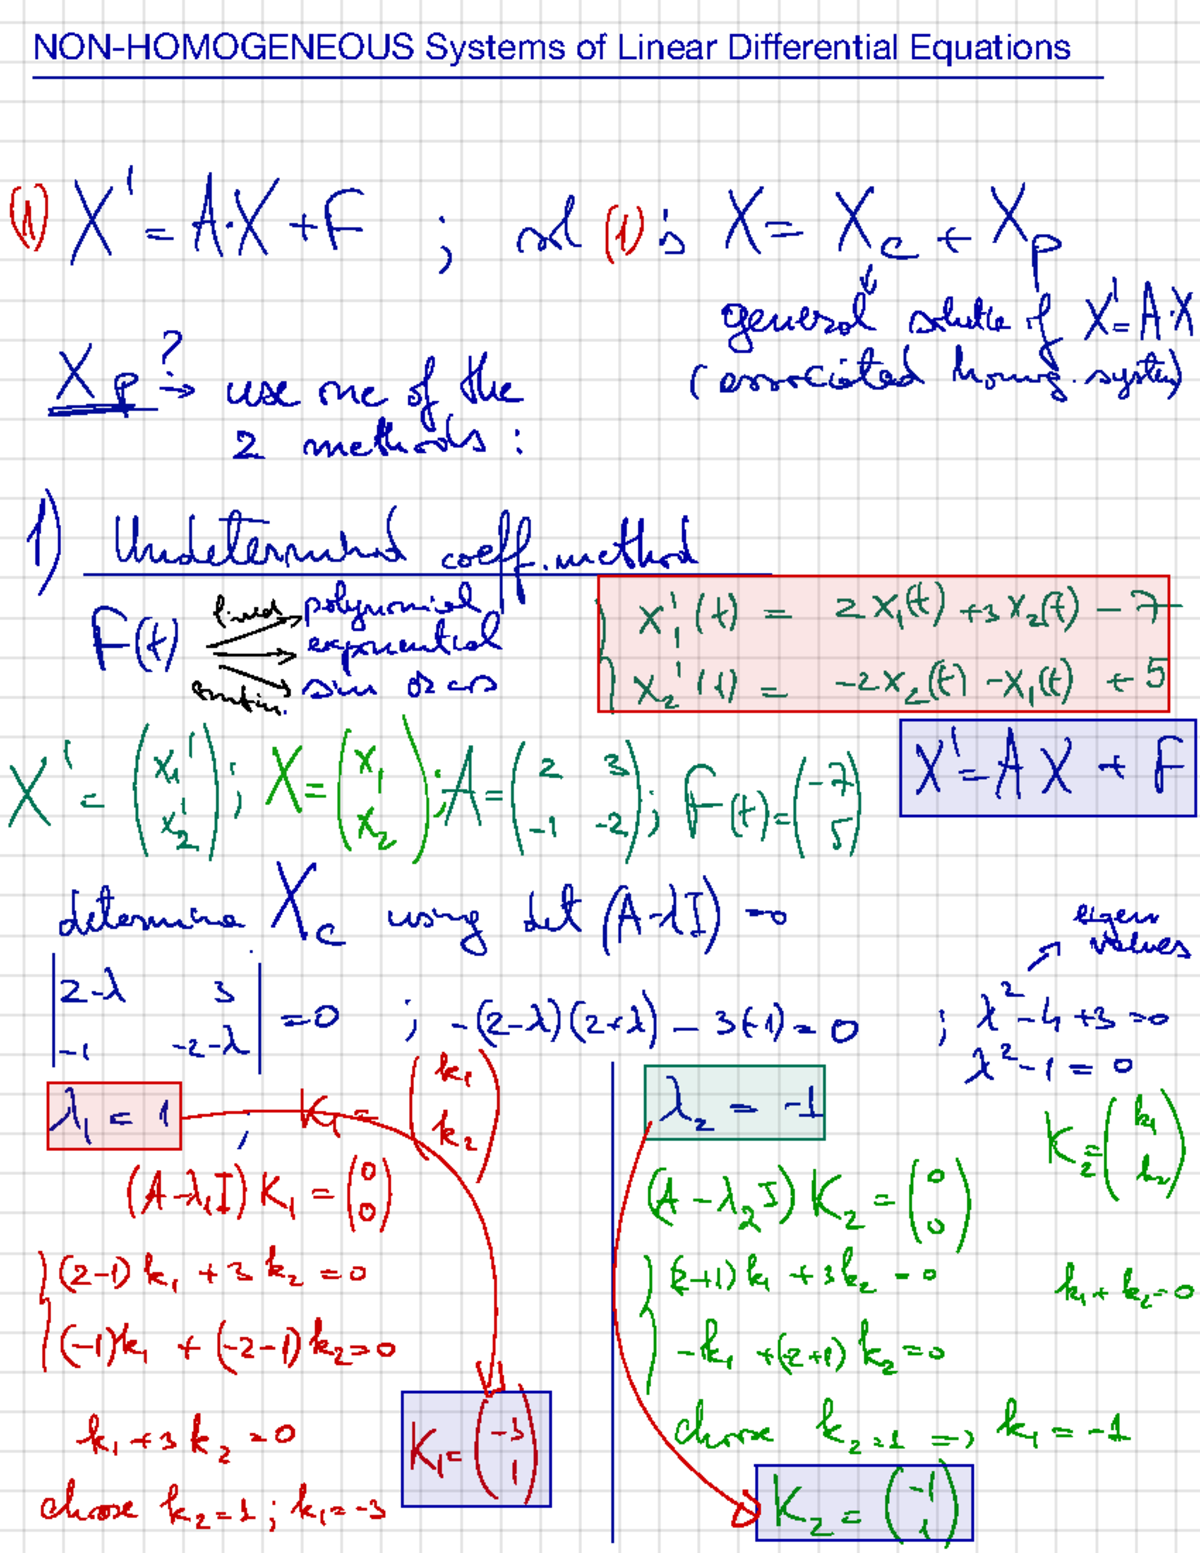 NON-HOMOGENEOUS Systems of Linear Differential Equations
(1) X' = A·X + F ; sol (1) is X = Xc + Xp
general solutio of X' = A·X
(associated homog. system)
Xp ? → use one of the
2 methods :
1) Undetermined coeff. method
F(t) → polynomial
→ exponential
→ sin or cos
x₁'(t) = 2x₁(t) + 3x₂(t) - 7
x₂'(t) = -2x₂(t) - x₁(t) + 5
X' = (x₁' x₂') ; X = (x₁ x₂) ; A = (2 3 -1 -2) ; F(t) = (-7 5)
X' = A X + F
determine Xc using det (A-λI) = 0
eigen values
|2-λ 3 -1 -2-λ| = 0 ; -(2-λ)(2+λ) - 3(-1) = 0 ; λ² - 4 + 3 = 0
λ² - 1 = 0
λ₁ = 1 ; K₁ = (k₁ k₂)
(A-λ₁I) K₁ = (0 0)
(2-1) k₁ + 3 k₂ = 0
(-1)k₁ + (-2-1) k₂ = 0
k₁ + 3 k₂ = 0
choose k₂ = 1 ; k₁ = -3
K₁ = (-3 1)
λ₂ = -1
K₂ = (k₁ k₂)
(A - λ₂I) K₂ = (0 0)
(2+1) k₁ + 3k₂ = 0
k₁ + k₂ = 0
-k₁ + (-2+1) k₂ = 0
choose k₂ = 1 => k₁ = -1
K₂ = (-1 1)